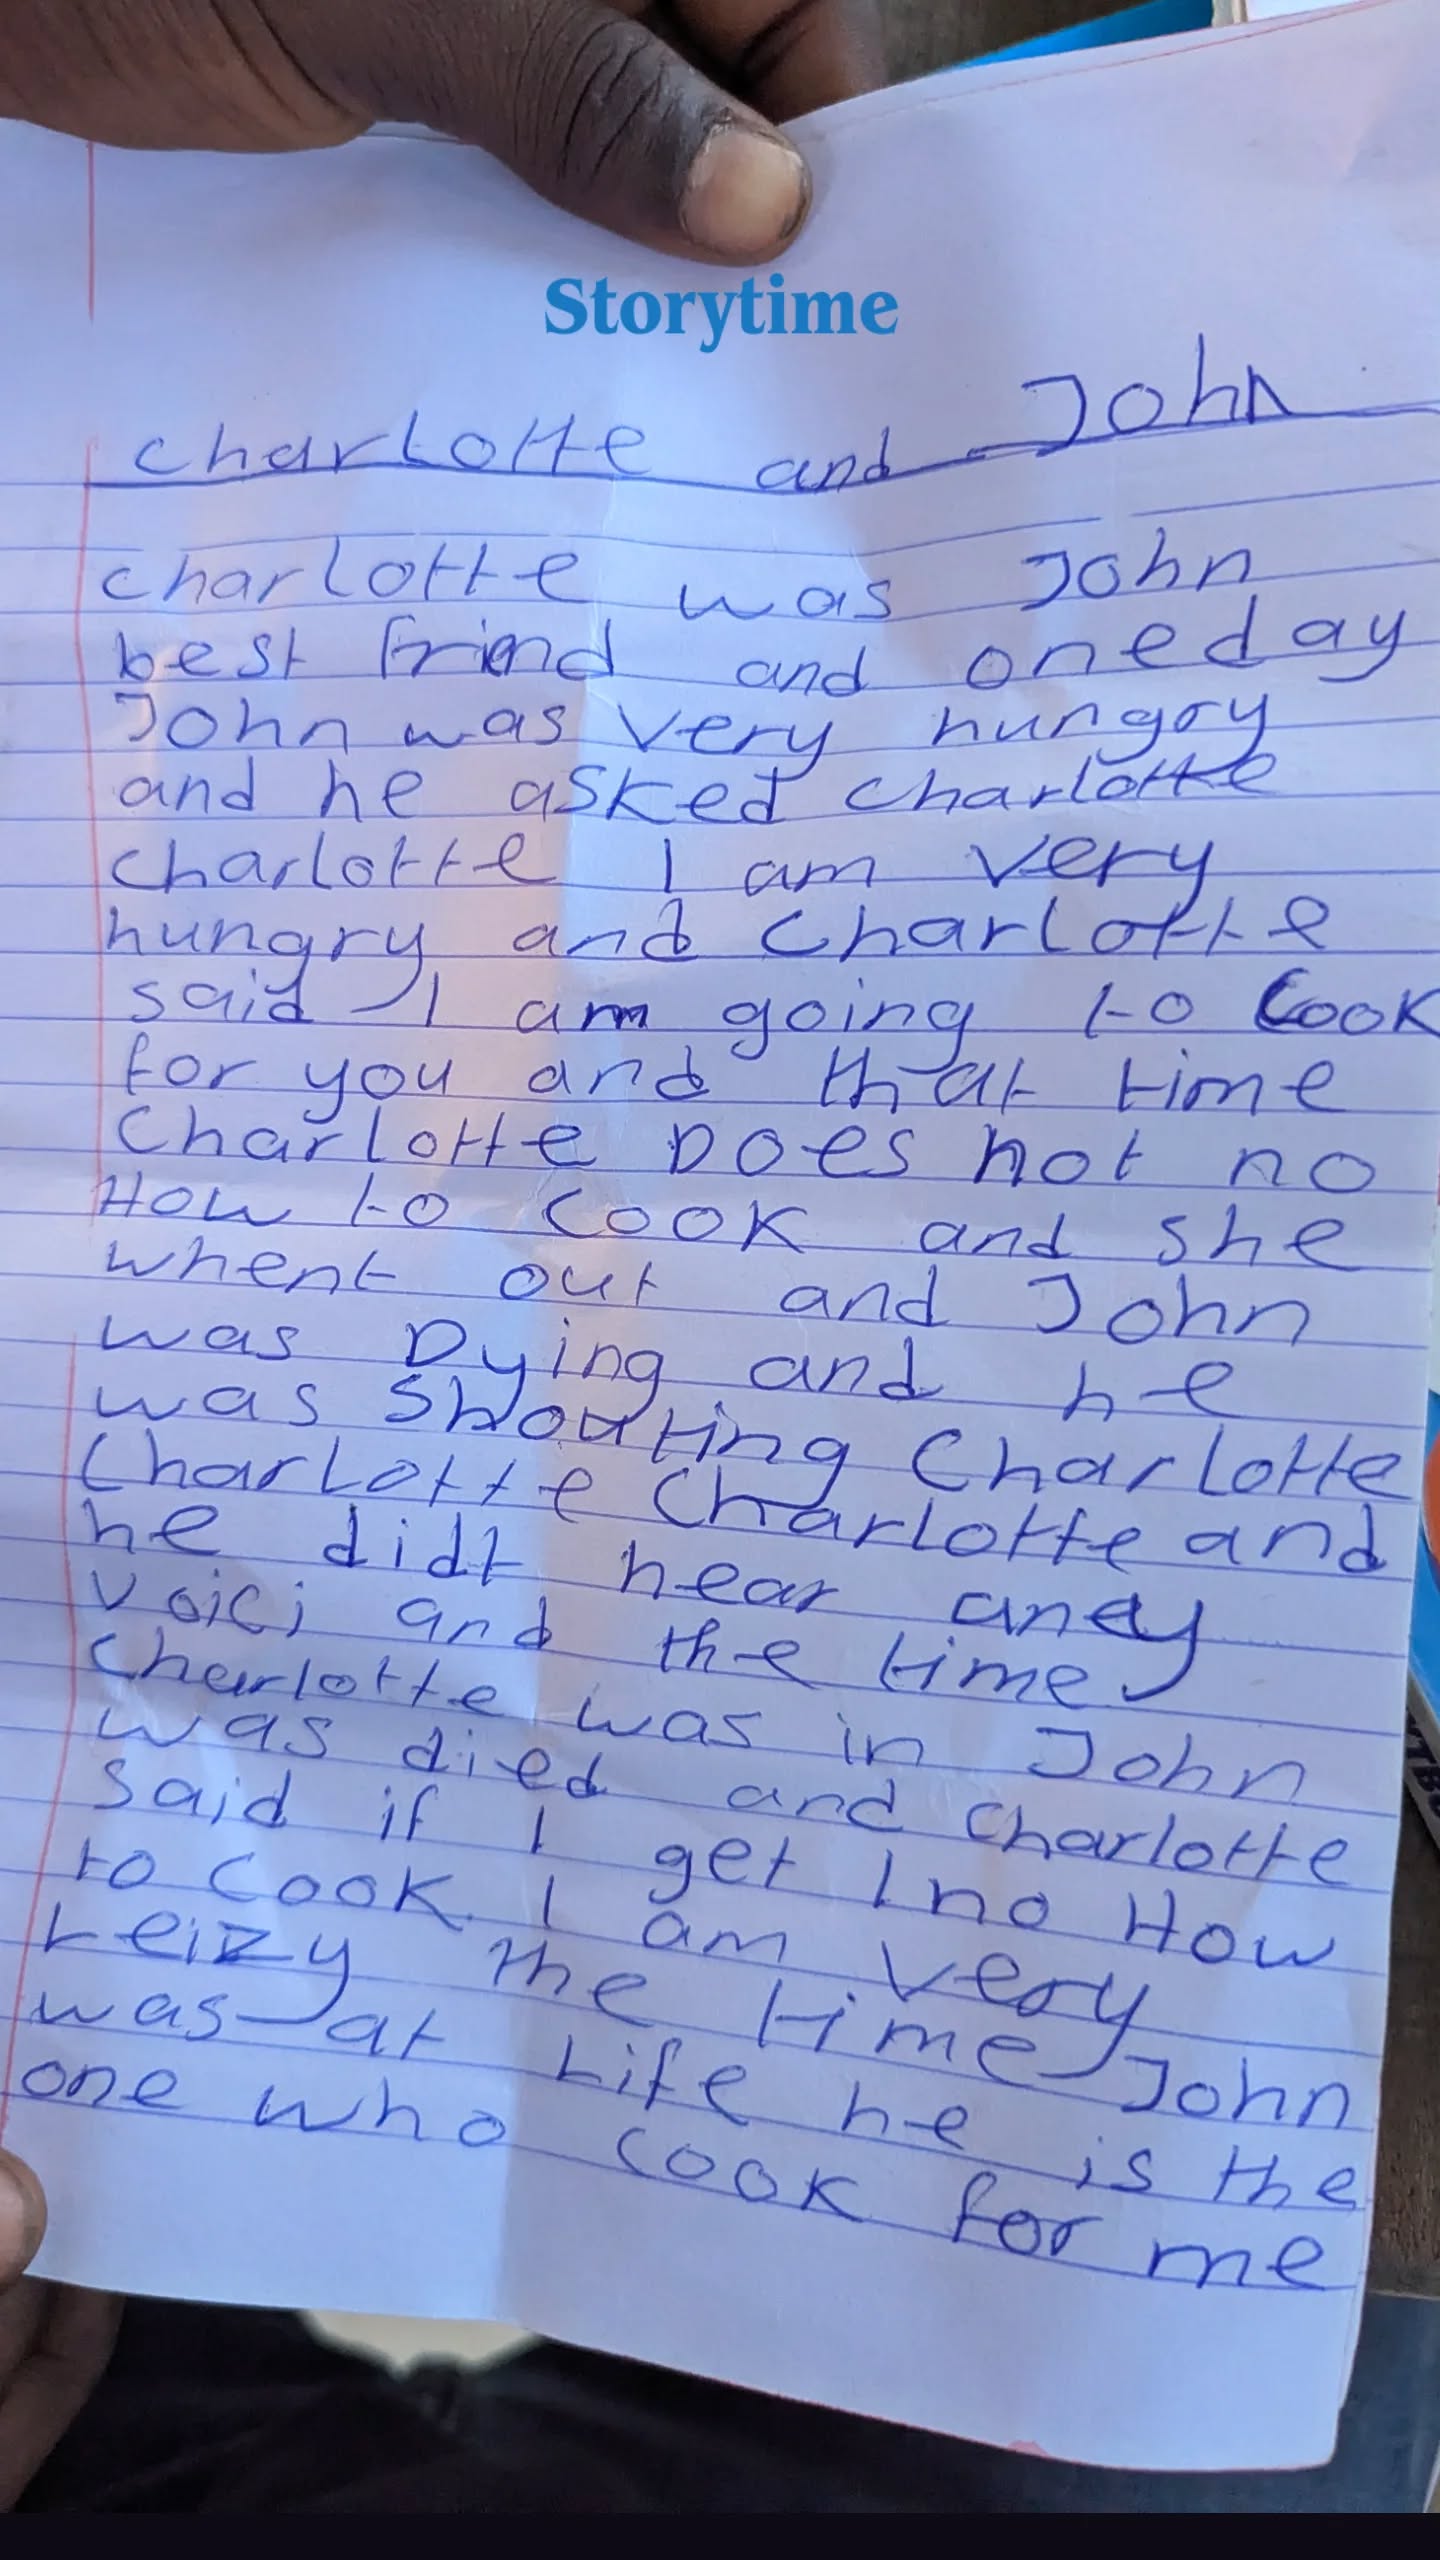 Storytime
Charlotte and John
Charlotte was John
best friend and oneday
John was very hungry
and he asked Charlotte
Charlotte I am very
hungry and Charlotte
said I am going to cook
for you and that time
Charlotte Does not no
How to cook and she
whent out and John
was Dying and he
was shouting Charlotte
Charlotte Charlotte and
he didt hear aney
voici and the time
Charlotte was in John
was died and Charlotte
said if I get I no How
to cook I am very
Leizy the time John
was at Life he is the
one who cook for me